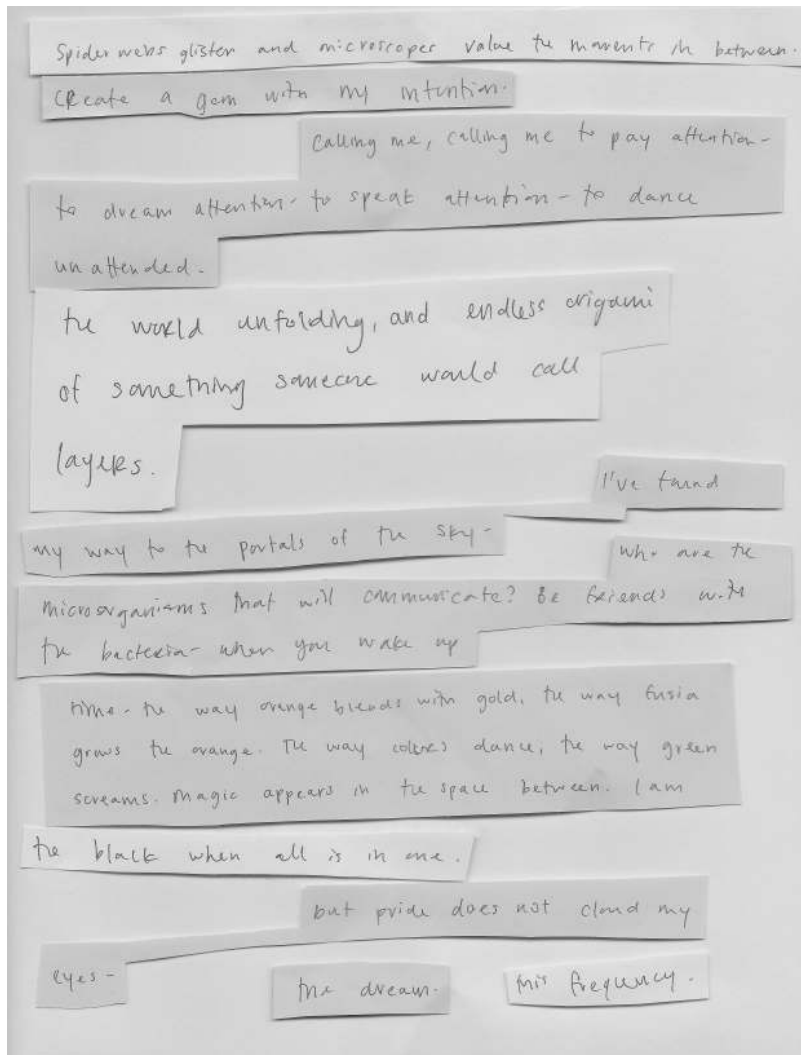 Spider webs glisten and microscopes value the moments in between.
CREate a gem with my intention.
Calling me, calling me to pay attention-
to dream attention- to speak attention- to dance
unattended.
the world unfolding, and endless origami
of something someone would call
layers.
I've found
my way to the portals of the sky-
who are the
microorganisms that will communicate? Be friends with
the bacteria- when you wake up
time- the way orange blends with gold, the way fusia
grows the orange. The way colors dance, the way green
screams. Magic appears in the space between. I am
the black when all is in one.
but pride does not cloud my
eyes-
the dream.
this frequency.